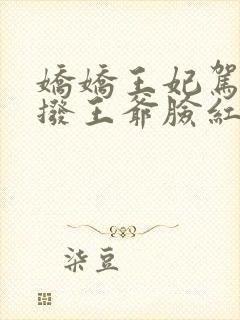 嬌嬌王妃駕
撥王爺臉紅
柒豆